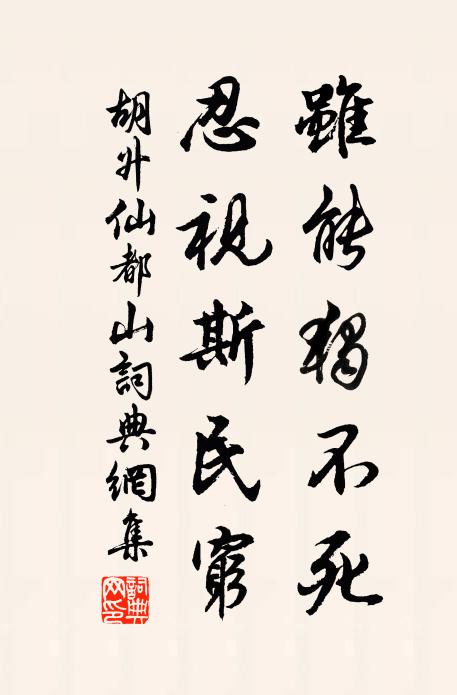 雖能獨不死
忍視斯民窮
胡升仙都山詞典網集
詞典網印